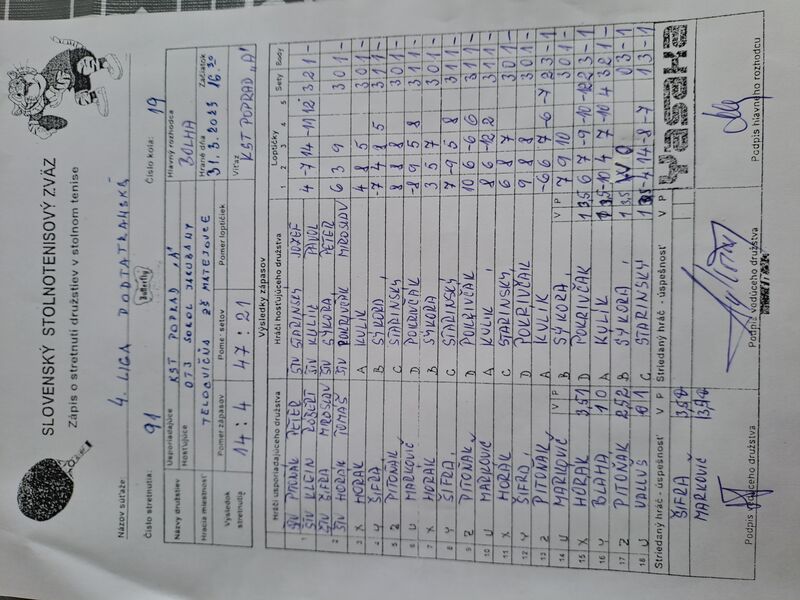 SLOVENSKÝ STOLNOTENISOVÝ ZVÄZ
Zápis o stretnutí družstiev v stolnom tenise
Názov súťaže: 4. LIGA PODTATRANSKÁ
Číslo stretnutia: 91 Butterfly Číslo kola: 19
Názvy družstiev Usporiadajúce KST POPRAD "A" Hlavný rozhodca BOLHA
Hosťujúce OTJ SOKOL JAKUBANY Hrané dňa 31.3.2023 Začiatok 16.30
Hracia miestnosť TELOCVIČŇA ZŠ MATEJOVCE
Výsledok stretnutia Pomer zápasov 14:4 Pomer setov 47:21 Pomer loptičiek Víťaz KST POPRAD "A"
Výsledky zápasov
Hráči usporiadajúceho družstva Hráči hosťujúceho družstva Loptičky Sety Body
1 2 3 4 5
ŠTV PITOŇÁK PETER ŠTV STARINSKÝ JOZEF
1 ŠTV KLEIN RÓBERT ŠTV KULIK PAVOL 4 -7 14 -11 12 3 2 1 -
ŠTV ŠIFRA MIROSLAV ŠTV SÝKORA PETER
2 ŠTV HORÁK TOMÁŠ ŠTV POKRIVČÁK MIROSLAV 6 3 9 3 0 1 -
3 X HORÁK A KULIK 4 8 5 3 0 1 -
4 Y ŠIFRA B SÝKORA -7 4 8 5 3 1 1 -
5 Z PITOŇÁK C STARINSKÝ 8 8 8 3 0 1 -
6 U MARKOVIČ D POKRIVČÁK -8 9 5 8 3 1 1 -
7 X HORÁK B SÝKORA 3 5 7 3 0 1 -
8 Y ŠIFRA C STARINSKÝ 7 -9 5 8 3 1 1 -
9 Z PITOŇÁK D POKRIVČÁK 10 6 -6 6 3 1 1 -
10 U MARKOVIČ A KULIK 8 6 -12 2 3 1 1 -
11 X HORÁK C STARINSKÝ 6 8 7 3 0 1 -
12 Y ŠIFRA D POKRIVČÁK 9 8 8 3 0 1 -
13 Z PITOŇÁK A KULIK -6 6 7 -6 -7 2 3 - 1
14 U MARKOVIČ V P B SÝKORA V P 7 9 10 3 0 1 -
15 X HORÁK D POKRIVČÁK 6 7 -9 -10 -12 2 3 - 1
16 Y BLAHA A KULIK -10 4 7 -10 4 3 2 1 -
17 Z PITOŇÁK B SÝKORA 0 3 - 1
18 U VALUŠ C STARINSKÝ -4 14 -8 -7 1 3 - 1
Striedaný hráč - úspešnosť V P Striedaný hráč - úspešnosť V P Yasaka
ŠIFRA
MARKOVIČ
Podpis vedúceho družstva Podpis vedúceho družstva Podpis hlavného rozhodcu